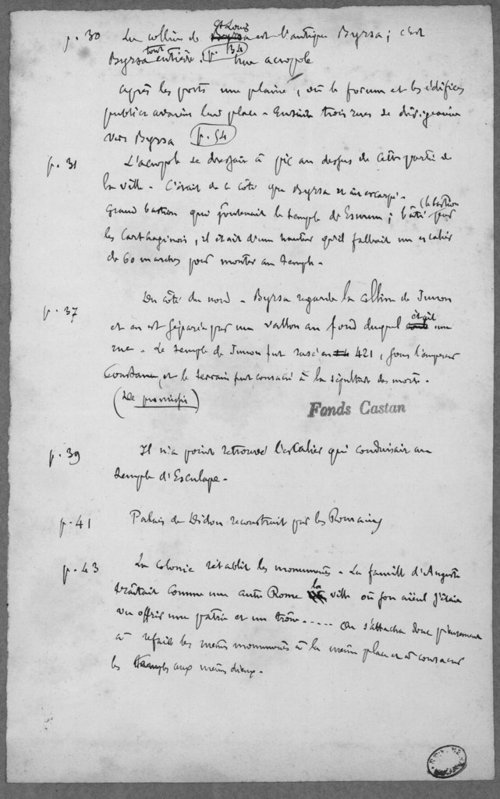 p. 30 La colline de St Louis est l'antique Byrsa ; c'est
Byrsa tout entière. (p. 34) une acropole
Après les ports une plaine, où le forum et les édifices
publics avaient leur place - Ensuite trois rues se dirigeaient
vers Byrsa (p. 54)
p. 31 L'acropole se dressait à pic au dessus de cette partie de
la ville - C'était de ce côté que Byrsa était escarpé.
Grand bastion qui soutenait le temple de Esmun ; bâti par
les Carthaginois, il était d'une hauteur qu'il fallait un escalier
de 60 marches pour monter au temple.
p. 37 Du côté du nord - Byrsa regarde la colline de Junon
et en est séparée par un vallon au fond duquel était une
rue - Le temple de Junon fut rasé en 421, sous l'empereur
Constance, et le terrain fut consacré à la sépulture des morts.
Fonds Castan
p. 39 Il n'a point retrouvé l'escalier qui conduisait au
temple d'Esculape.
p. 41 Palais de Didon reconstruit par les Romains
p. 43 La colonie rétablit les monuments - La famille d'Auguste
traitait comme une autre Rome la ville où son aïeul s'était
vu offrir une patrie et un trône ..... On s'attacha donc pieusement
à refaire les mêmes monuments à la même place et à consacrer
les temples aux mêmes dieux -